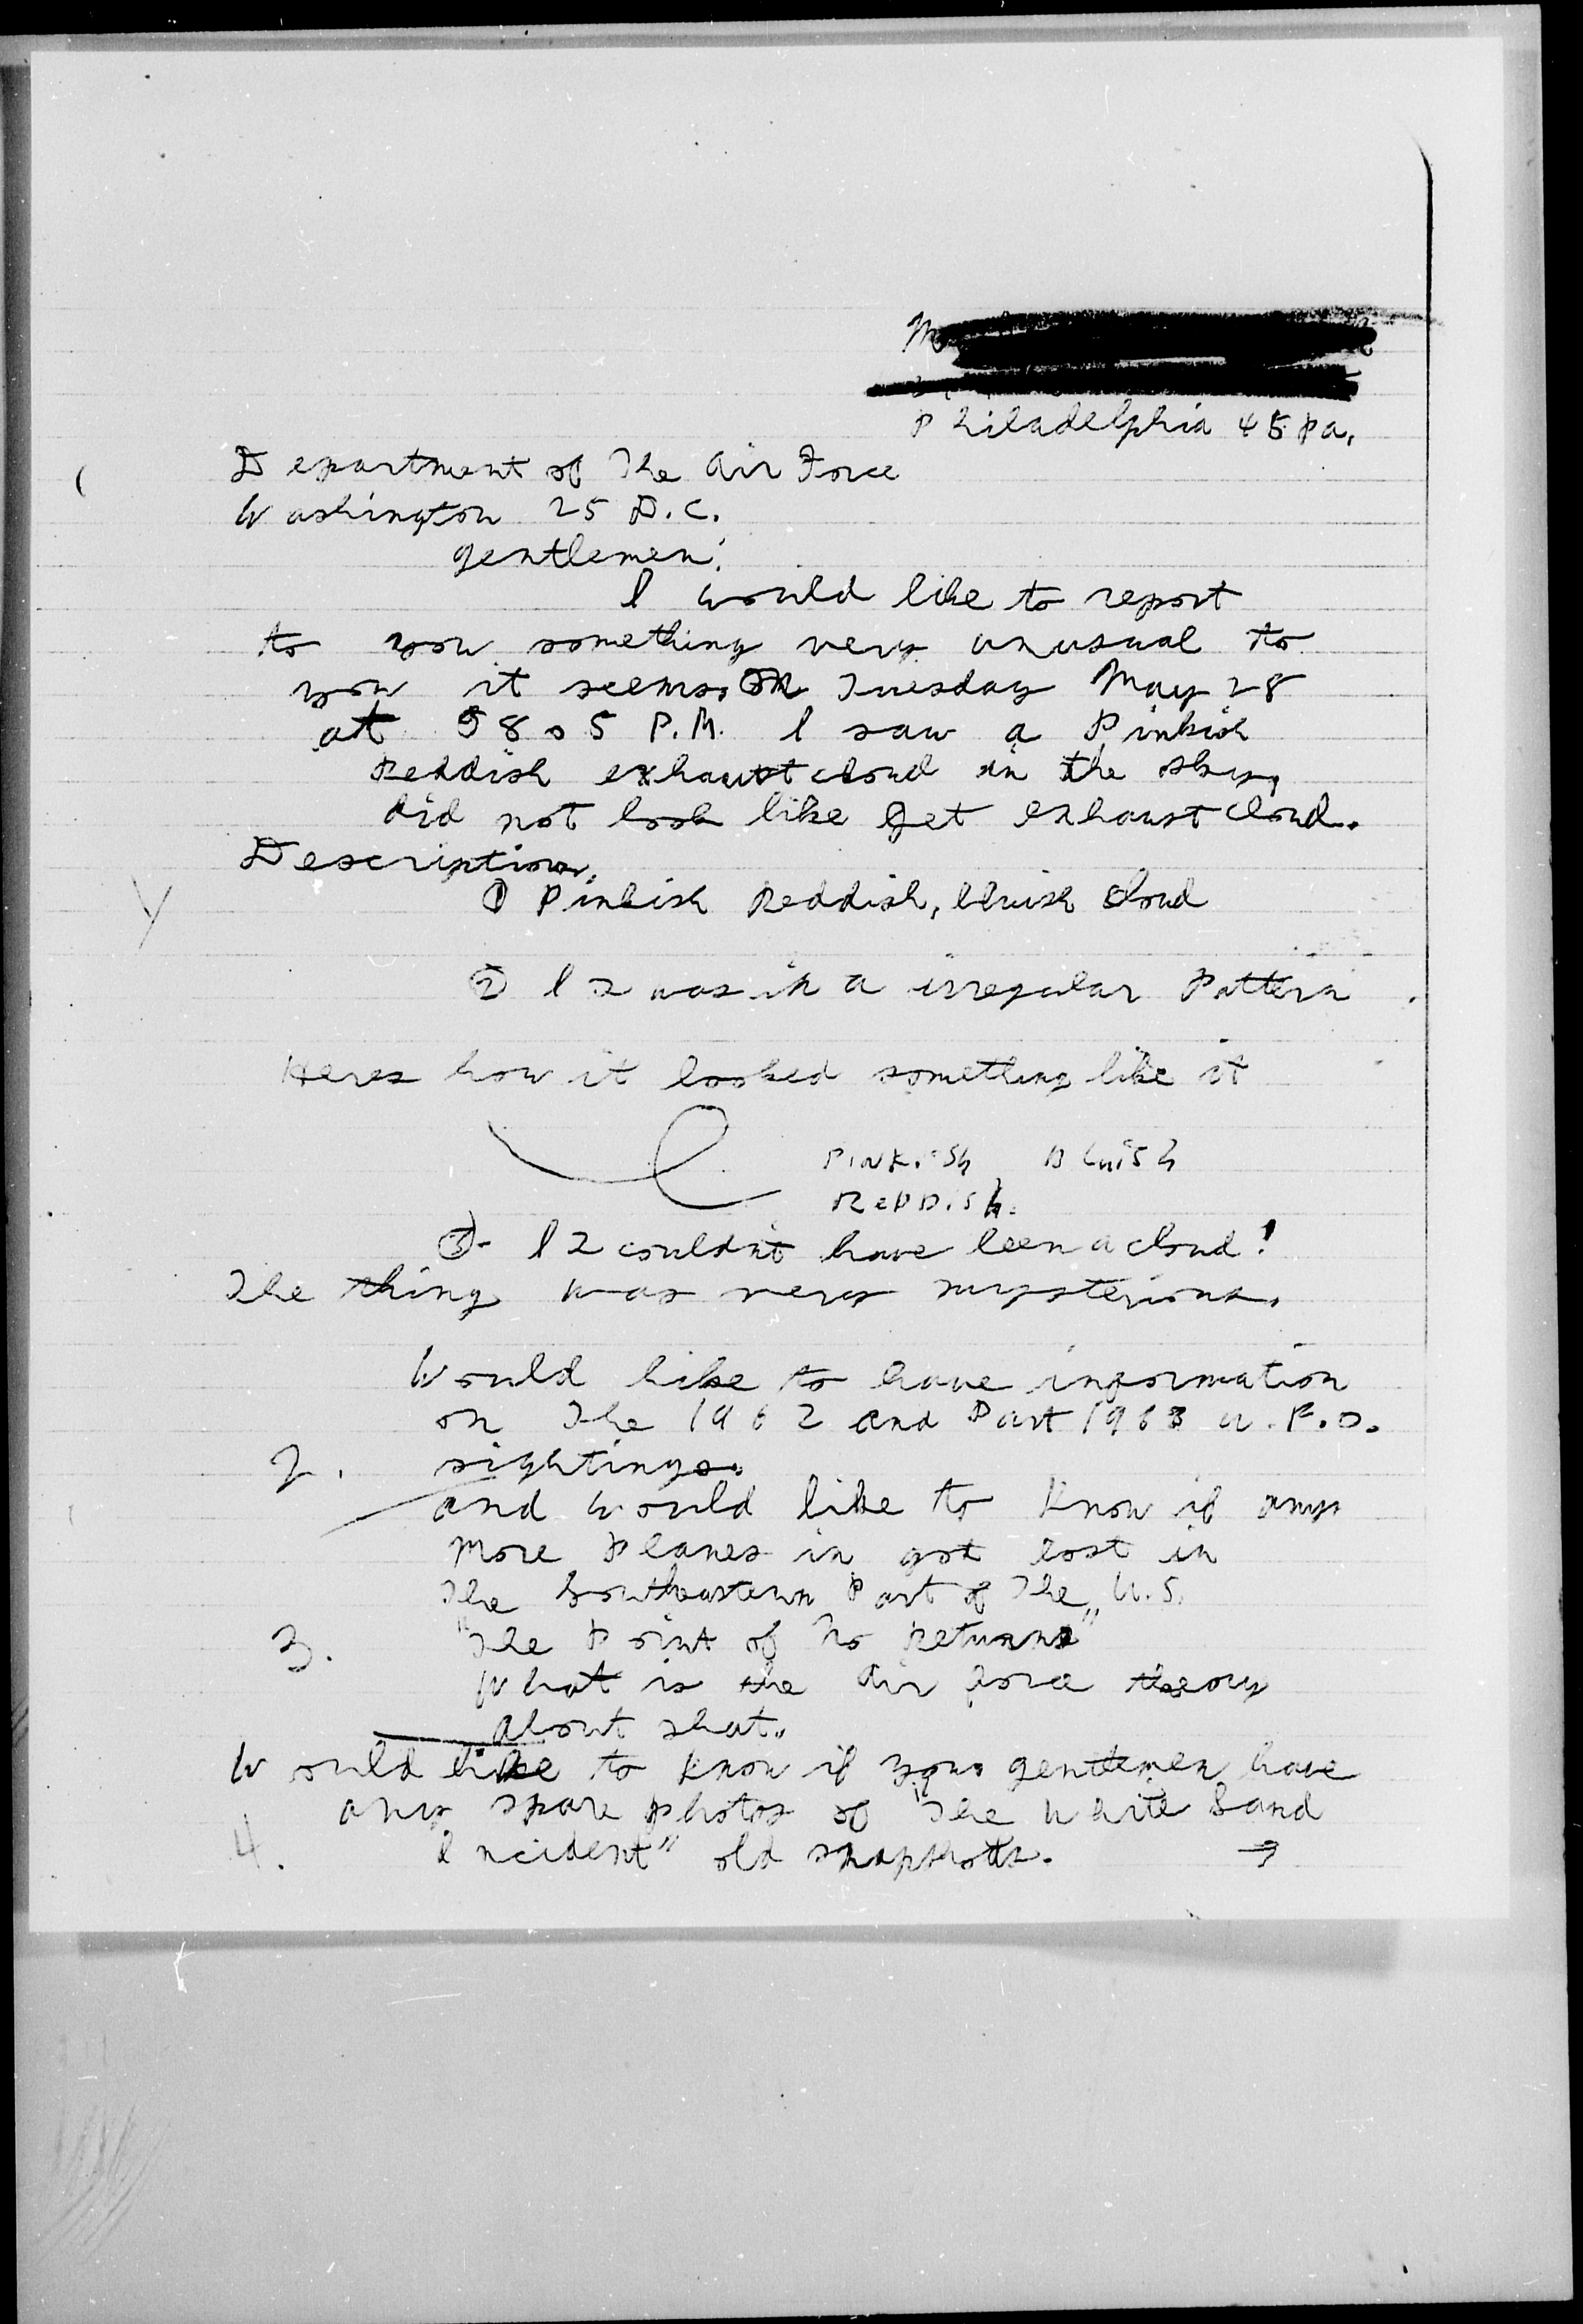 M
Philadelphia 45 Pa.
Department of The Air Force
Washington 25 D.C.
gentlemen:
I would like to report
to you something very unusual to
you it seems. On Tuesday May 28
at 8 o 5 P.M. I saw a Pinkish
Reddish exhaust cloud in the sky,
did not look like Jet exhaust cloud.
Description.
① Pinkish Reddish, bluish cloud
② I was in a irregular Pattern
Heres how it looked something like it
PiNKiSh BluiSh
ReDDiSh.
③- I couldn't have been a cloud!
The thing was very mysterious.
Would like to have information
on The 1962 and Part 1963 U.F.O.
2. sightings.
and would like to know if any
more Planes in got lost in
The Southeastern Part of The U.S.
3. "The Point of No Returns"
What is the Air force theory
about that.
Would like to know if you gentlemen have
any spare photos of "The White Sand
4. Incident" old snapshots. →